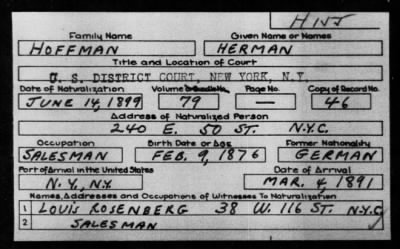 HINJ
Family Name Given Name or Names
HOFFMAN HERMAN
Title and Location of Court
U. S. DISTRICT COURT, NEW YORK, N.Y.
Date of Naturalization Volume or Bundle No. Page No. Copy of Record No.
JUNE 14, 1899 79 — 46
Address of Naturalized Person
240 E. 50 ST. N.Y.C.
Occupation Birth Date or Age Former Nationality
SALESMAN FEB. 9, 1876 GERMAN
Port of Arrival in the United States Date of Arrival
N.Y., N.Y. MAR. 4, 1891
Names, Addresses and Occupations of Witnesses To Naturalization
1 LOUIS ROSENBERG 38 W. 116 ST. N.Y.C.
2 SALESMAN